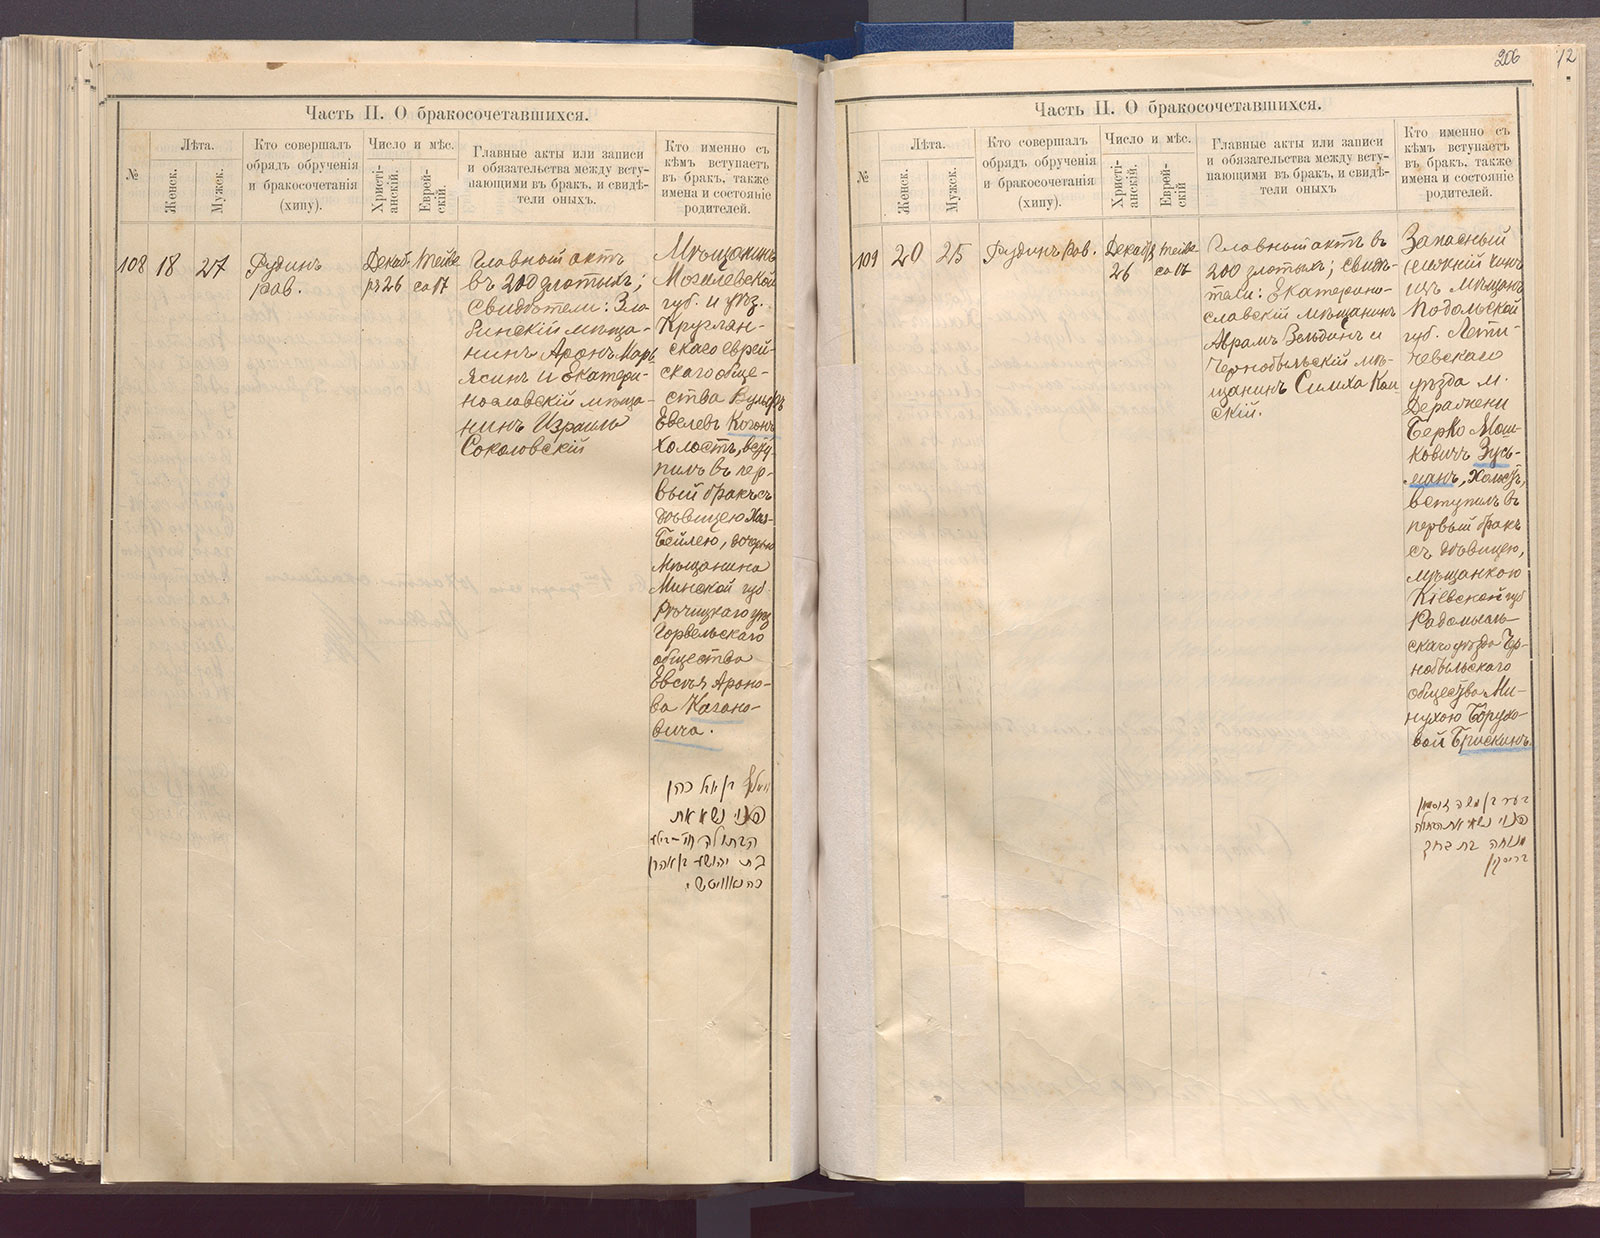 Часть II. О бракосочетавшихся.
№
Лѣта.
Женск.
Мужск.
Кто совершалъ
обрядъ обрученія
и бракосочетанія
(хипу).
Число и мѣс.
Христі-
анскій.
Еврей-
скій.
Главные акты или записи
и обязательства между всту-
пающими въ бракъ, и свидѣ-
тели оныхъ.
Кто именно съ
кѣмъ вступаетъ
въ бракъ, также
имена и состояніе
родителей.
108
18
27
Рудинъ
Рав.
Декаб
ря 26
Тейве
са 17
Главный актъ
въ 200 злотыхъ;
Свидѣтели: Зла
нскій мѣща-
нинъ Аронъ Марь
ясинъ и Екатери-
нославскій мѣща-
нинъ Израиль
Соколовскій
Мѣщанинъ
Могилевской
губ. и уѣз.
Круглян-
скаго еврей-
скаго обще-
ства Вульфъ
Евелевъ Коганъ
холостъ, всту
пилъ въ пер-
вый бракъ съ
дѣвицею Хая-
Бейлею, дочерью
Мѣщанина
Минской губ.
Рѣчицкаго уѣз
Горвельскаго
общества
Евсѣя Ароно-
ва Кагано-
вича.
בן יואל כהן
הפנוי נשא את
הבתולה חי׳ ביילע
בת יהושע בן אהרן
כהנאוויטש.
206
12
Часть II. О бракосочетавшихся.
№
Лѣта.
Женск.
Мужск.
Кто совершалъ
обрядъ обрученія
и бракосочетанія
(хипу).
Число и мѣс.
Христі-
анскій.
Еврей-
скій
Главные акты или записи
и обязательства между всту-
пающими въ бракъ, и свидѣ-
тели оныхъ
Кто именно съ
кѣмъ вступаетъ
въ бракъ, также
имена и состояніе
родителей.
109
20
25
Рудинъ Рав.
Декабр
26
Тейве
са 17
Главный актъ въ
200 злотыхъ; свидѣ-
тели: Екатерино-
славскій мѣщанинъ
Аврамъ Зельдинъ и
Чернобыльскій мѣ-
щанинъ Симха Кан
скій.
Запасный
нижній чинъ
изъ мѣщанъ
Подольской
губ. Лети-
чевскаго
уѣзда м.
Деражени
Берко Мош-
ковичъ Зусь-
манъ, холостъ,
вступилъ въ
первый бракъ
съ дѣвицею,
мѣщанкою
Кіевской губ
Радомысль-
скаго уѣзда Чер-
нобыльскаго
общества Ми-
нухою Борухо-
вой Брискинъ.
בער בן משה זוסמאן
הפנוי נשא את הבתולה
מנוחה בת ברוך
בריסקין